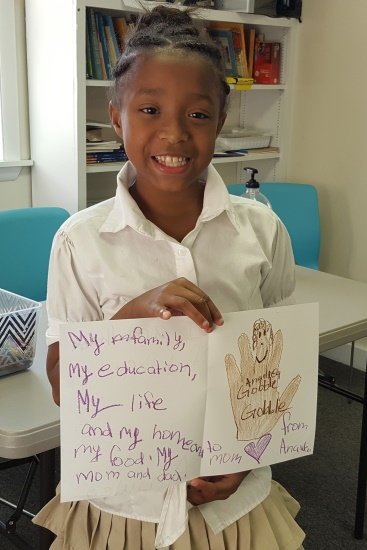 My family,
My education,
My life
and my home and
my food. My
mom and dad.
Gobble
Gobble
to mom
from